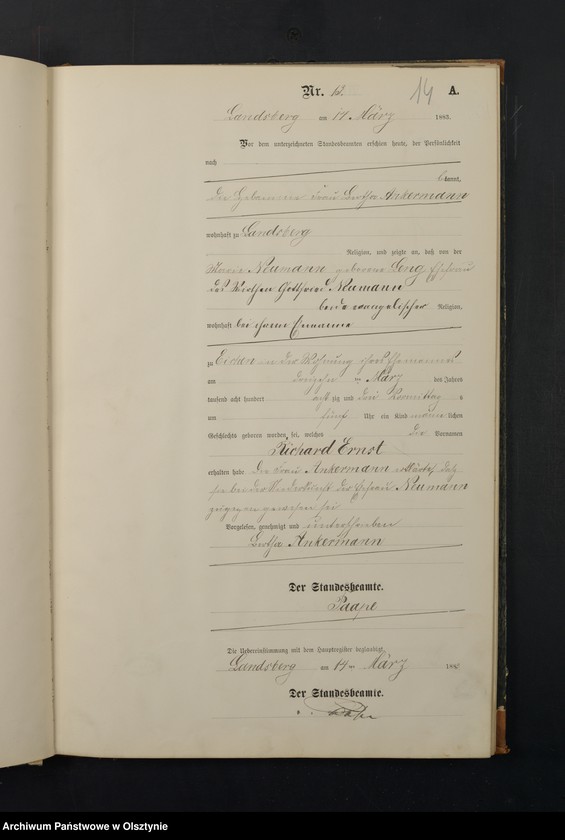 Nr. 12. 14 A.
Landsberg am 14. März 1883.
Vor dem unterzeichneten Standesbeamten erschien heute, der Persönlichkeit
nach
bekannt,
die Hebamme Frau Bertha Ankermann
wohnhaft zu Landsberg
Religion, und zeigte an, daß von der
Marie Neumann geborene Leng Ehefrau
des Gottfried Neumann
beide evangelischer Religion,
wohnhaft bei ihrem Ehemanne
zu in der Wohnung ihres Ehemannes
am dreizehn ten März des Jahres
tausend acht hundert achtzig und drei Vormittag s
um fünf Uhr ein Kind männlichen
Geschlechts geboren worden sei, welches die Vornamen
Richard Ernst
erhalten habe Die Frau Ankermann erklärte, daß
sie bei der Niederkunft der Ehefrau Neumann
zugegen gewesen sei
Vorgelesen, genehmigt und unterschrieben
Bertha Ankermann
Der Standesbeamte.
Die Uebereinstimmung mit dem Hauptregister beglaubigt
Landsberg am 14 ten März 188
Der Standesbeamte.
Archiwum Państwowe w Olsztynie